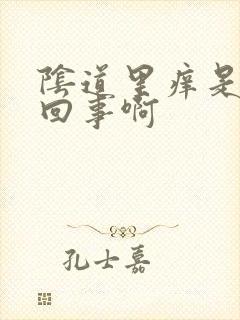 陰道里痒是
回事啊
孔士嘉